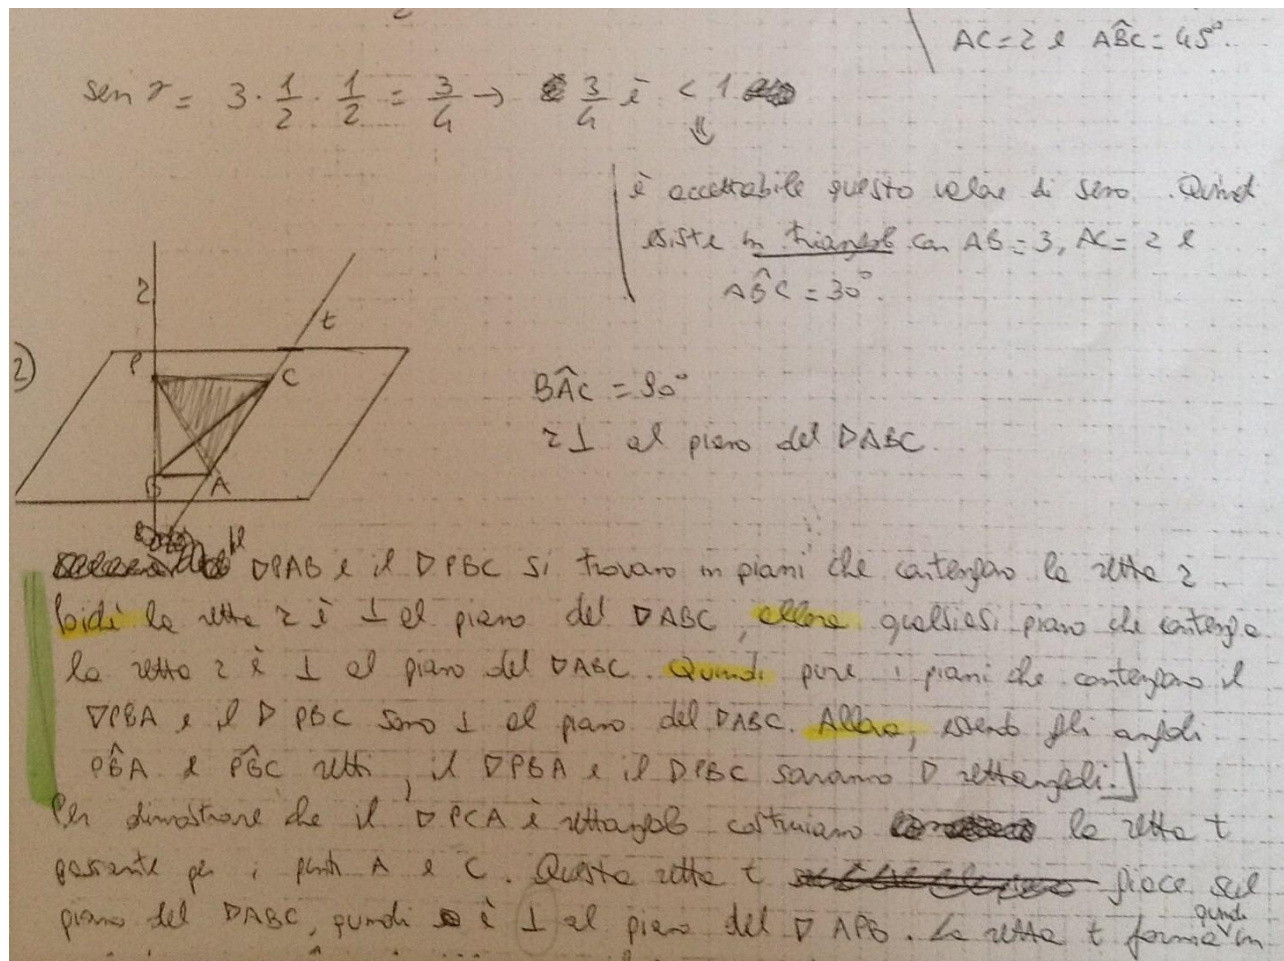 AC = 2 e AB̂C = 45°.
sen γ = 3 · 1/2 · 1/2 = 3/4 → 3/4 è < 1
⇓
è accettabile questo valore di seno. Quindi
esiste un triangolo con AB = 3, AC = 2 e
AB̂C = 30°.
r
t
2)
P
C
BÂC = 90°
r ⊥ al piano del ▷ABC.
B A
il ▷PAB e il ▷PBC si trovano in piani che contengono la retta r.
Poiché la retta r è ⊥ al piano del ▷ABC, allora qualsiasi piano che contenga
la retta r è ⊥ al piano del ▷ABC. Quindi pure i piani che contengono il
▷PBA e il ▷PBC sono ⊥ al piano del ▷ABC. Allora, essendo gli angoli
PB̂A e PB̂C retti, il ▷PBA e il ▷PBC saranno ▷ rettangoli.]
Per dimostrare che il ▷PCA è rettangolo costruiamo la retta t
passante per i punti A e C. Questa retta t giace sul
piano del ▷ABC, quindi è ⊥ al piano del ▷APB. La retta t forma quindi in